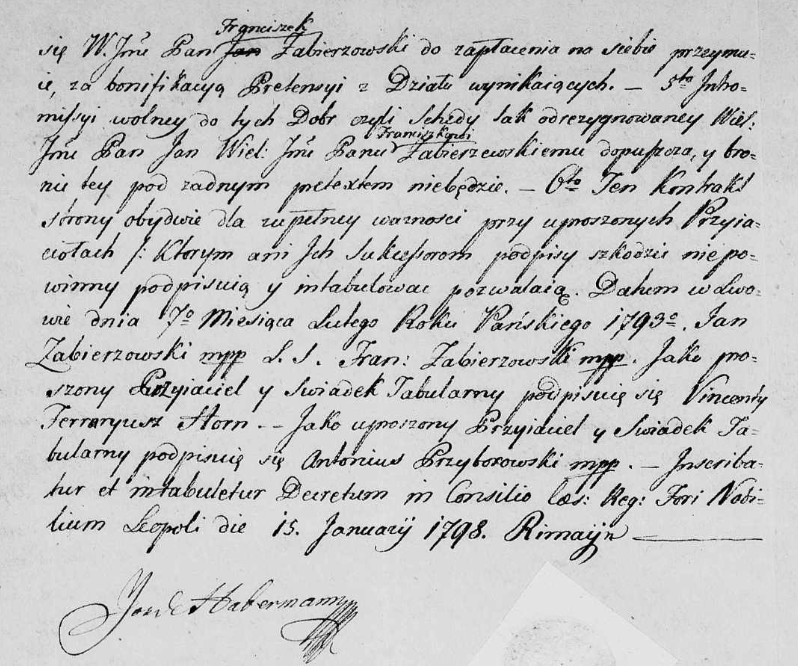 Franciszek
się W. Jmć Pan Jan Zabierzowski do zapłacenia na siebie przeymu-
ie, za bonifikacyą Pretensyi z Działu wynikaiących. — 5to Intro-
missyi wolney do tych Dobr czyli Schedy tak odrezygnowaney Wiel:
Franciszkowi
Jmć Pan Jan Wiel: Jmć Panu Zabierzewskiemu dopuszcza, y bro-
nić tey pod żadnym pretextem niebędzie. — 6to Ten Kontrakt
strony obydwie dla zupełney ważności przy uproszonych Przyia-
ciołach /: Ktorym ani Ich Sukcessorom podpisy szkodzić nie po-
winny podpisuią y intabulować pozwalaią. Datum w Lwo-
wie dnia 7o Miesiąca Lutego Roku Pańskiego 1793o. Jan
Zabierzowski mpp L. S. Fran: Zabierzowski mpp. Jako pro-
szony Przyiaciel y Swiadek Tabularny podpisuię się Vincenty
Ferraryusz Horn. — Jako uproszony Przyiaciel y Swiadek Ta-
bularny podpisuię się Antonius Przyborowski mpp. — Inscriba-
tur et intabuletur Decretum in Consilio Cæs: Reg: Fori Nobi-
lium Leopoli die 15. Januarij 1798.
Habermann